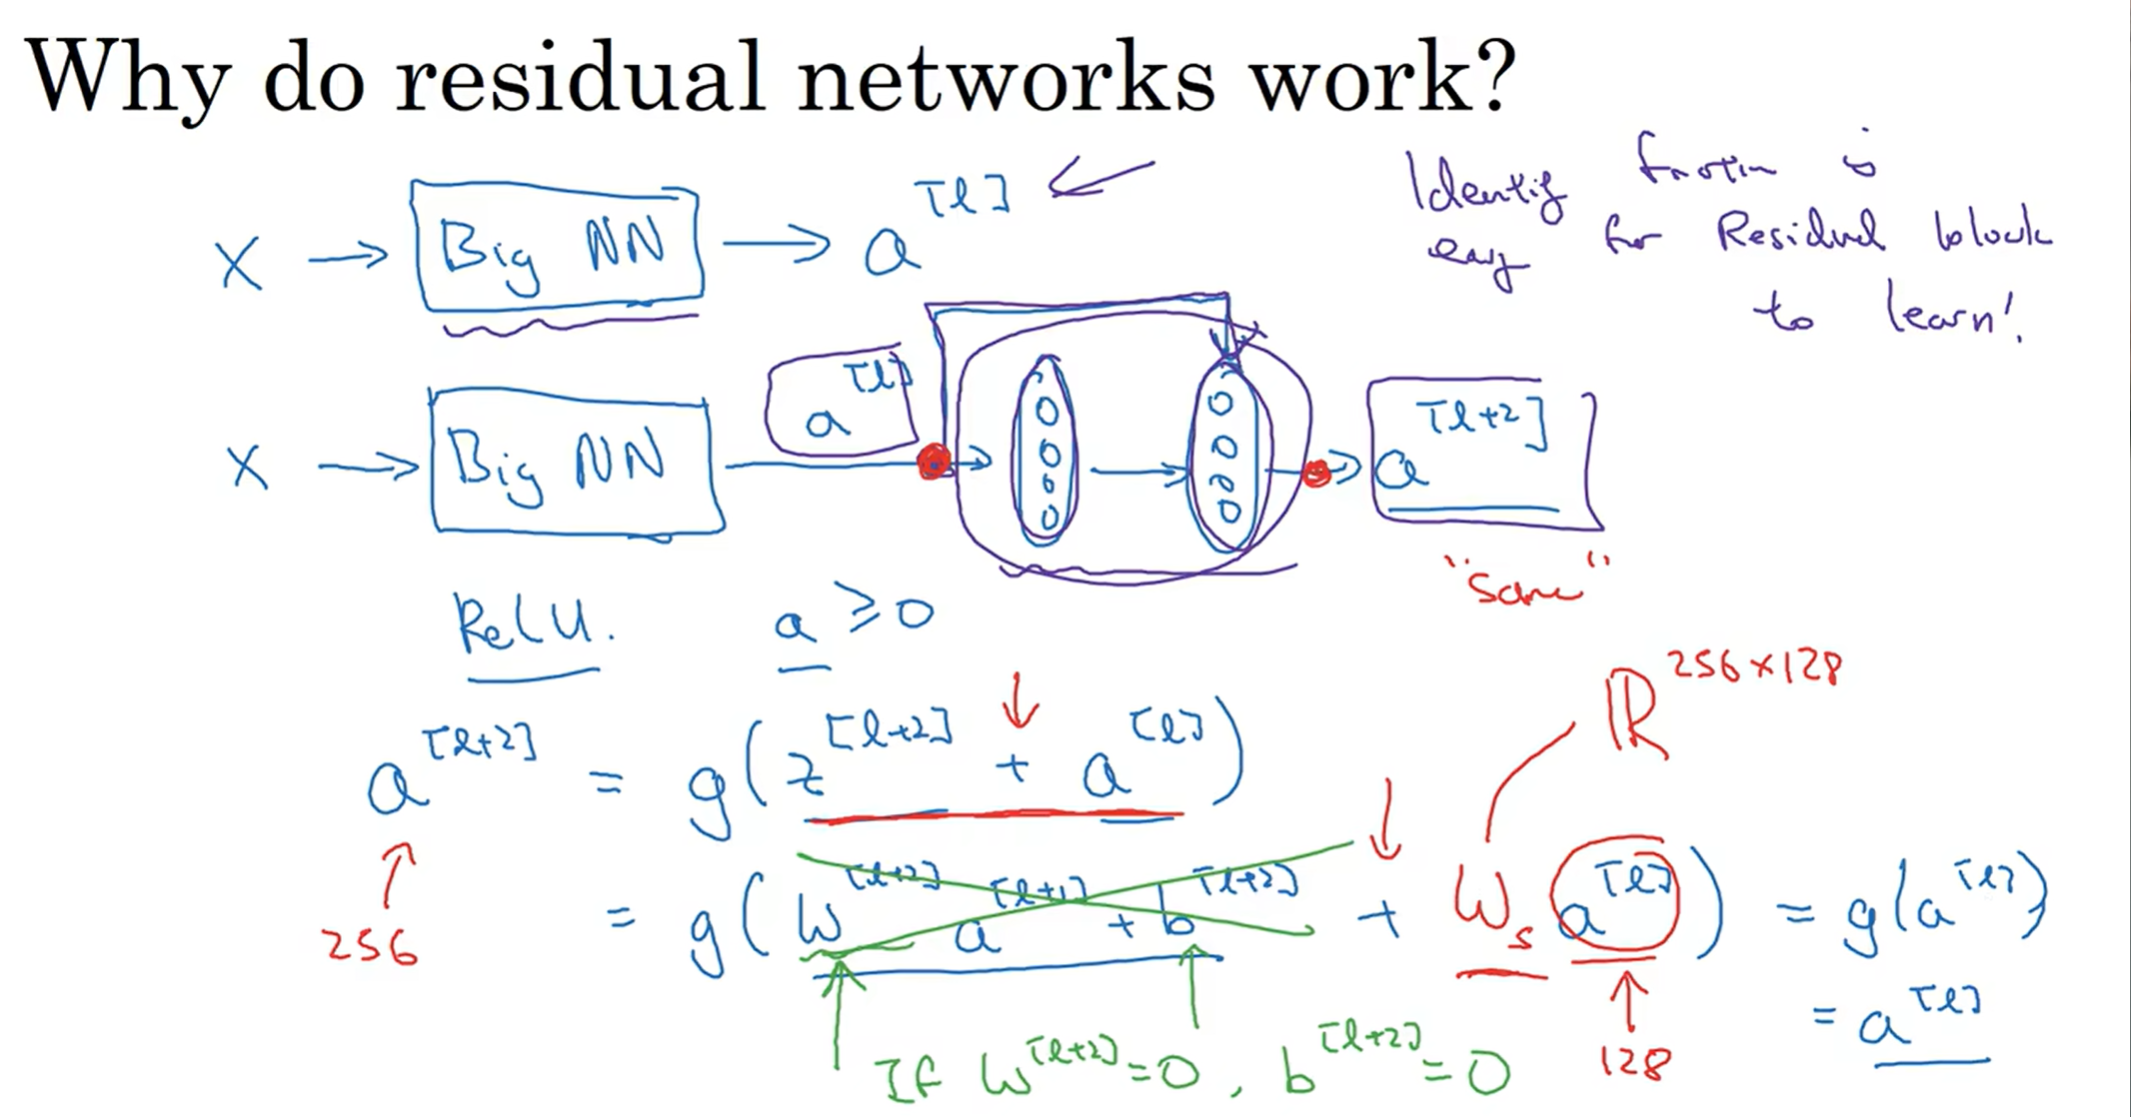 Why do residual networks work?
X → Big NN → a^[l] ←
Identity function is
easy for Residual block
to learn!
X → Big NN a^[l] → → → a^[l+2]
"same"
ReLU. a ≥ 0
ℝ^256×128
a^[l+2] = g(z^[l+2] + a^[l])
= g(W^[l+2] a^[l+1] + b^[l+2] + W_s a^[l]) = g(a^[l])
256
= a^[l]
If W^[l+2] = 0, b^[l+2] = 0
128